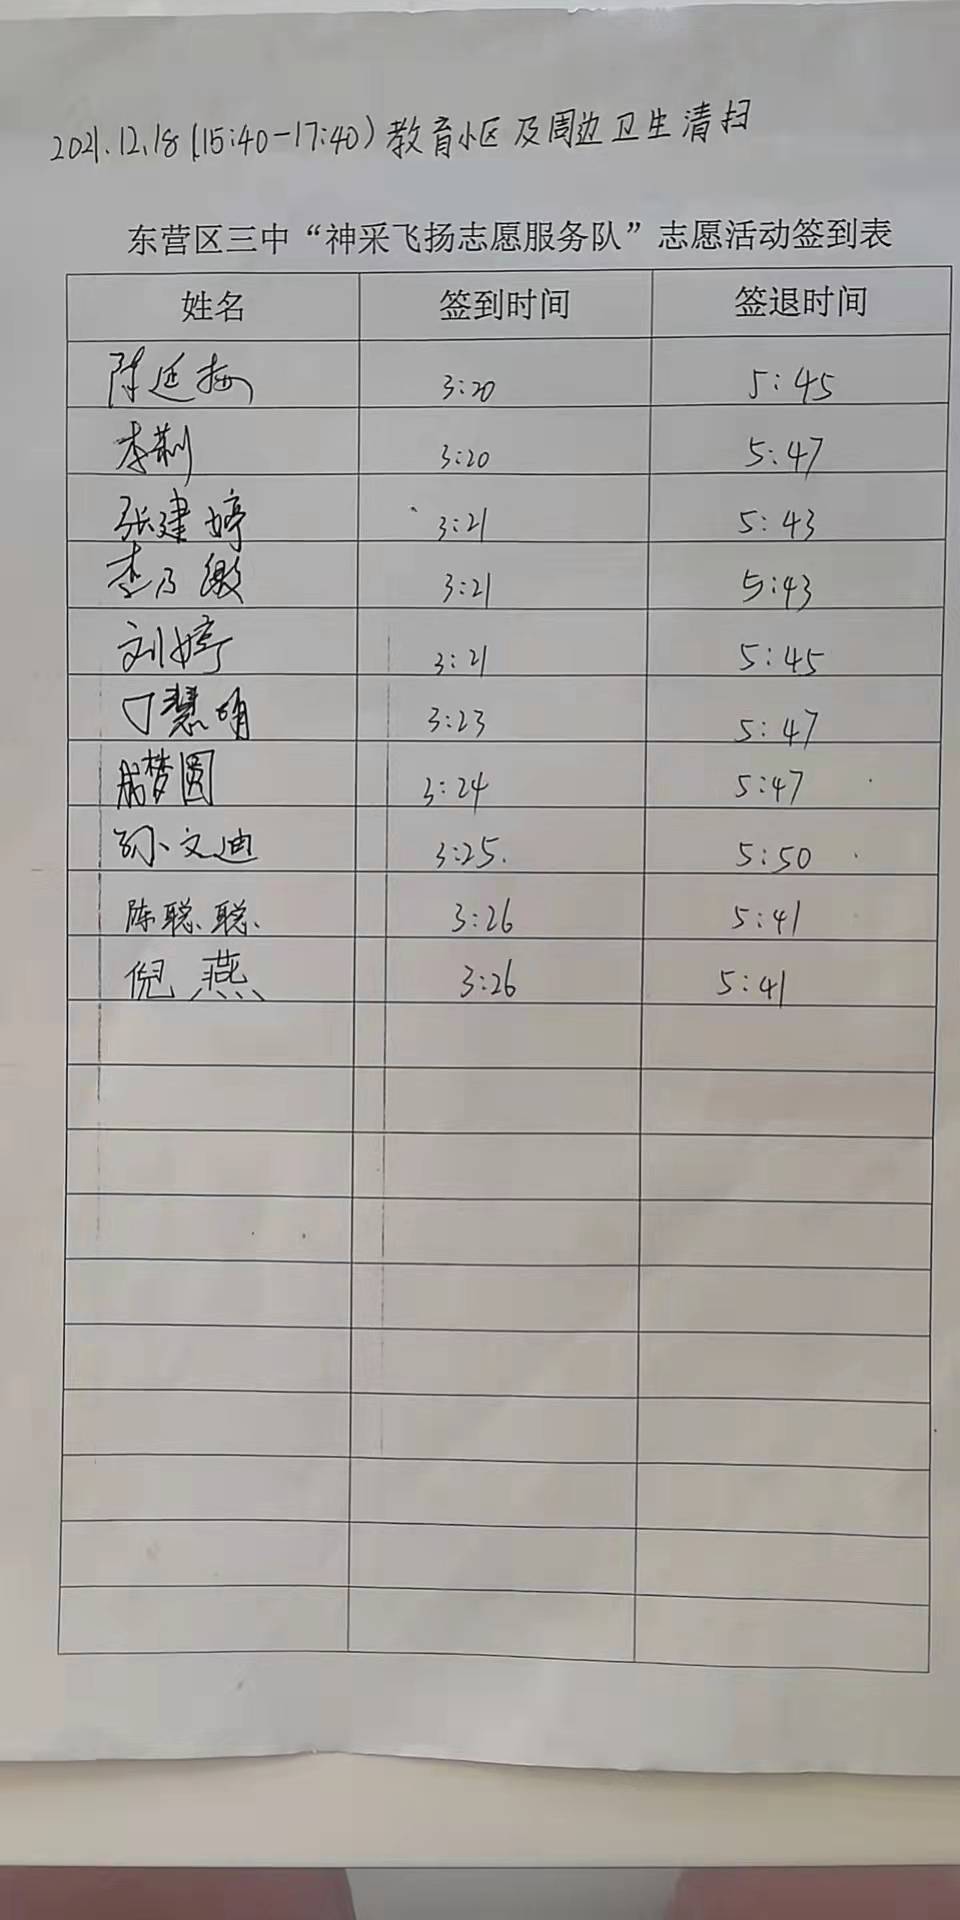 2021.12.18(15:40-17:40)教育小区及周边卫生清扫
东营区三中“神采飞扬志愿服务队”志愿活动签到表
姓名 签到时间 签退时间
陈延梅 3:20 5:45
李莉 3:20 5:47
张建婷 3:21 5:43
李乃 3:21 5:43
刘婷 3:21 5:45
丁慧明 3:23 5:47
梦圆 3:24 5:47
孙文迪 3:25. 5:50
陈聪聪. 3:26 5:41
倪燕 3:26 5:41